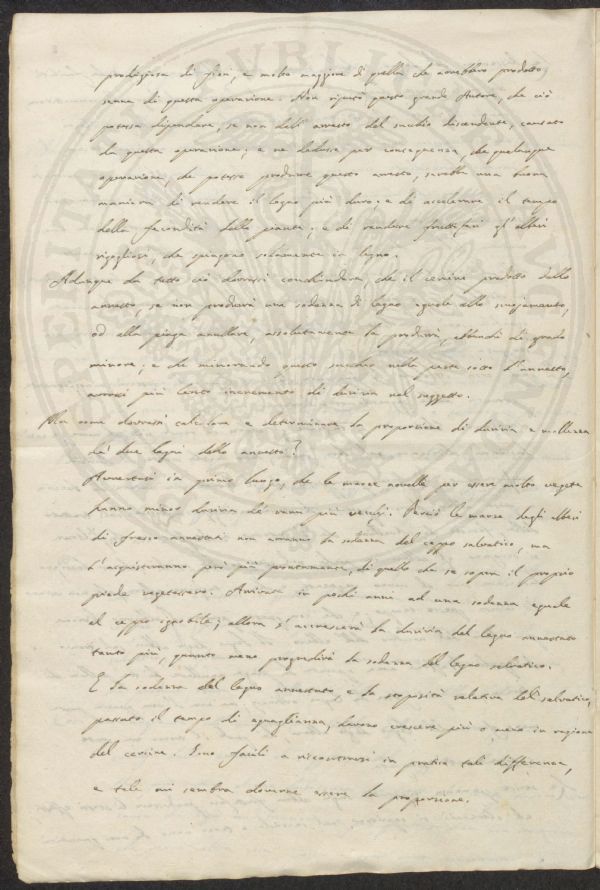 prodigiosa di fiori, e molto maggiore di quella che avrebbero prodotto
senza di questa operazione. Non reputò questo grande Autore, che ciò
potesse dipendere, se non dall'arresto del succhio discendente, causato
da questa operazione; e ne dedusse per conseguenza, che qualunque
operazione, che potesse produrre questo arresto, sarebbe una buona
maniera di rendere il legno più duro; e di accelerare il tempo
della fecondità delle piante; e di rendere fruttiferi gl'alberi
rigogliosi, che spingono solamente in legno.
Adunque da tutto ciò dovrassi conchiudere, che il cercine prodotto dallo
annesto, se non produrrà una sodezza di legno eguale allo scorzamento,
od alla piaga annullare, assolutamente la produrrà, abbenchè di grado
minore; e che minorando questo succhio nella parte sotto l'annesto,
avrassi più lento incremento di durezza nel soggetto.
Ma come dovrassi calcolare e determinare la proporzione di durezza e mollezza
de' due legni dello annesto?
Avvertasi in primo luogo, che le marze novelle per essere molto vegete
hanno minor durezza de' rami più vecchj. Perciò le marze degli alberi
di fresco annestati non avranno la sodezza del ceppo salvatico, ma
l'acquisteranno però più prontamente, di quello che se sopra il proprio
piede vegetassero. Arrivata in pochi anni ad una sodezza eguale
al ceppo ignobile; allora s'accrescerà la durezza del legno annestato
tanto più, quanto meno progredirà la sodezza del legno salvatico.
E la sodezza del legno annestato, e la stoposità relativa del salvatico,
passato il tempo di eguaglianza, devono crescere più o meno in ragione
del cercine. Sono facili a riscontrarsi in pratica tali differenze,
e tale mi sembra doverne essere la proporzione.